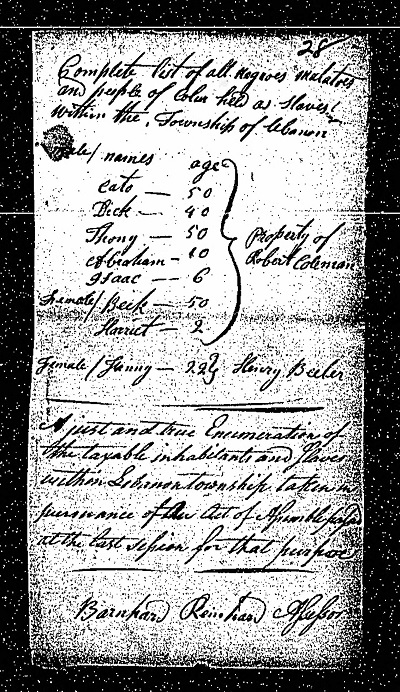 28
Complete list of all negroes mulatoes
and people of Color held as slaves
within the Township of Lebanon
Male/ names age
Cato — 50
Dick — 40
Thony — 50
Abraham — 10 Property of
Isaac — 6 Robert Coleman
Female/ Beck — 50
Harriet — 2
Female/ Fanny — 22 Henry Beeler
A just and true Enumeration of
the taxable inhabitants and Slaves
within Lebanon township taken in
pursuance of the Act of Assembly passed
at the last session for that purpose
Barnhard Reinhard Assessor